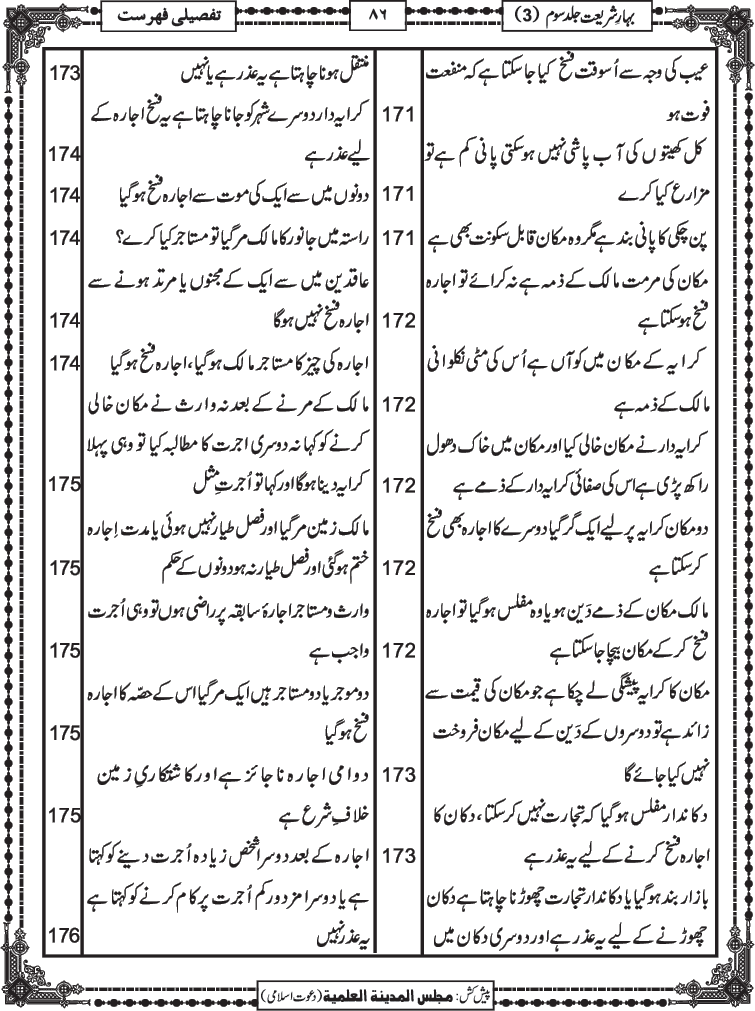 بہارِ شریعت جلد سوم (3)
۸۶
تفصیلی فہرست
عیب کی وجہ سے اُسوقت فسخ کیا جاسکتا ہے کہ منفعت
فوت ہو 171
کل کھیتوں کی آب پاشی نہیں ہوسکتی پانی کم ہے تو
مزارع کیا کرے 171
پن چکی کا پانی بند ہے مگر وہ مکان قابل سکونت بھی ہے 171
مکان کی مرمت مالک کے ذمہ ہے نہ کرائے تو اجارہ
فسخ ہوسکتا ہے 172
کرایہ کے مکان میں کوآں ہے اُس کی مٹی نکلوانی
مالک کے ذمہ ہے 172
کرایہ دار نے مکان خالی کیا اور مکان میں خاک دھول
راکھ پڑی ہے اس کی صفائی کرایہ دار کے ذمے ہے 172
دو مکان کرایہ پر لیے ایک گر گیا دوسرے کا اجارہ بھی فسخ
کرسکتا ہے 172
مالک مکان کے ذمے دَین ہو یا وہ مفلس ہوگیا تو اجارہ
فسخ کرکے مکان بیچا جاسکتا ہے 172
مکان کا کرایہ پیشگی لے چکا ہے جو مکان کی قیمت سے
زائد ہے تو دوسروں کے دَین کے لیے مکان فروخت
نہیں کیا جائے گا 173
دکاندار مفلس ہوگیا کہ تجارت نہیں کرسکتا، دکان کا
اجارہ فسخ کرنے کے لیے یہ عذر ہے 173
بازار بند ہوگیا یا دکاندار تجارت چھوڑنا چاہتا ہے دکان
چھوڑنے کے لیے یہ عذر ہے اور دوسری دکان میں
منتقل ہونا چاہتا ہے یہ عذر ہے یا نہیں 173
کرایہ دار دوسرے شہر کو جانا چاہتا ہے یہ فسخ اجارہ کے
لیے عذر ہے 174
دونوں میں سے ایک کی موت سے اجارہ فسخ ہوگیا 174
راستہ میں جانور کا مالک مرگیا تو مستاجر کیا کرے؟ 174
عاقدین میں سے ایک کے مجنوں یا مرتد ہونے سے
اجارہ فسخ نہیں ہوگا 174
اجارہ کی چیز کا مستاجر مالک ہوگیا، اجارہ فسخ ہوگیا 174
مالک کے مرنے کے بعد نہ وارث نے مکان خالی
کرنے کو کہا نہ دوسری اجرت کا مطالبہ کیا تو وہی پہلا
کرایہ دینا ہوگا اور کہا تو اُجرتِ مثل 175
مالک زمین مرگیا اور فصل طیار نہیں ہوئی یا مدت اِجارہ
ختم ہوگئی اور فصل طیار نہ ہو دونوں کے حکم 175
وارث و مستاجر اجارۂ سابقہ پر راضی ہوں تو وہی اُجرت
واجب ہے 175
دو موجر یا دو مستاجر ہیں ایک مرگیا اس کے حصّہ کا اجارہ
فسخ ہوگیا 175
دوامی اجارہ ناجائز ہے اور کاشتکاریِ زمین
خلافِ شرع ہے 175
اجارہ کے بعد دوسرا شخص زیادہ اُجرت دینے کو کہتا
ہے یا دوسرا مزدور کم اُجرت پر کام کرنے کو کہتا ہے
یہ عذر نہیں 176
پیش کش: مجلس المدینۃ العلمیۃ (دعوت اسلامی)